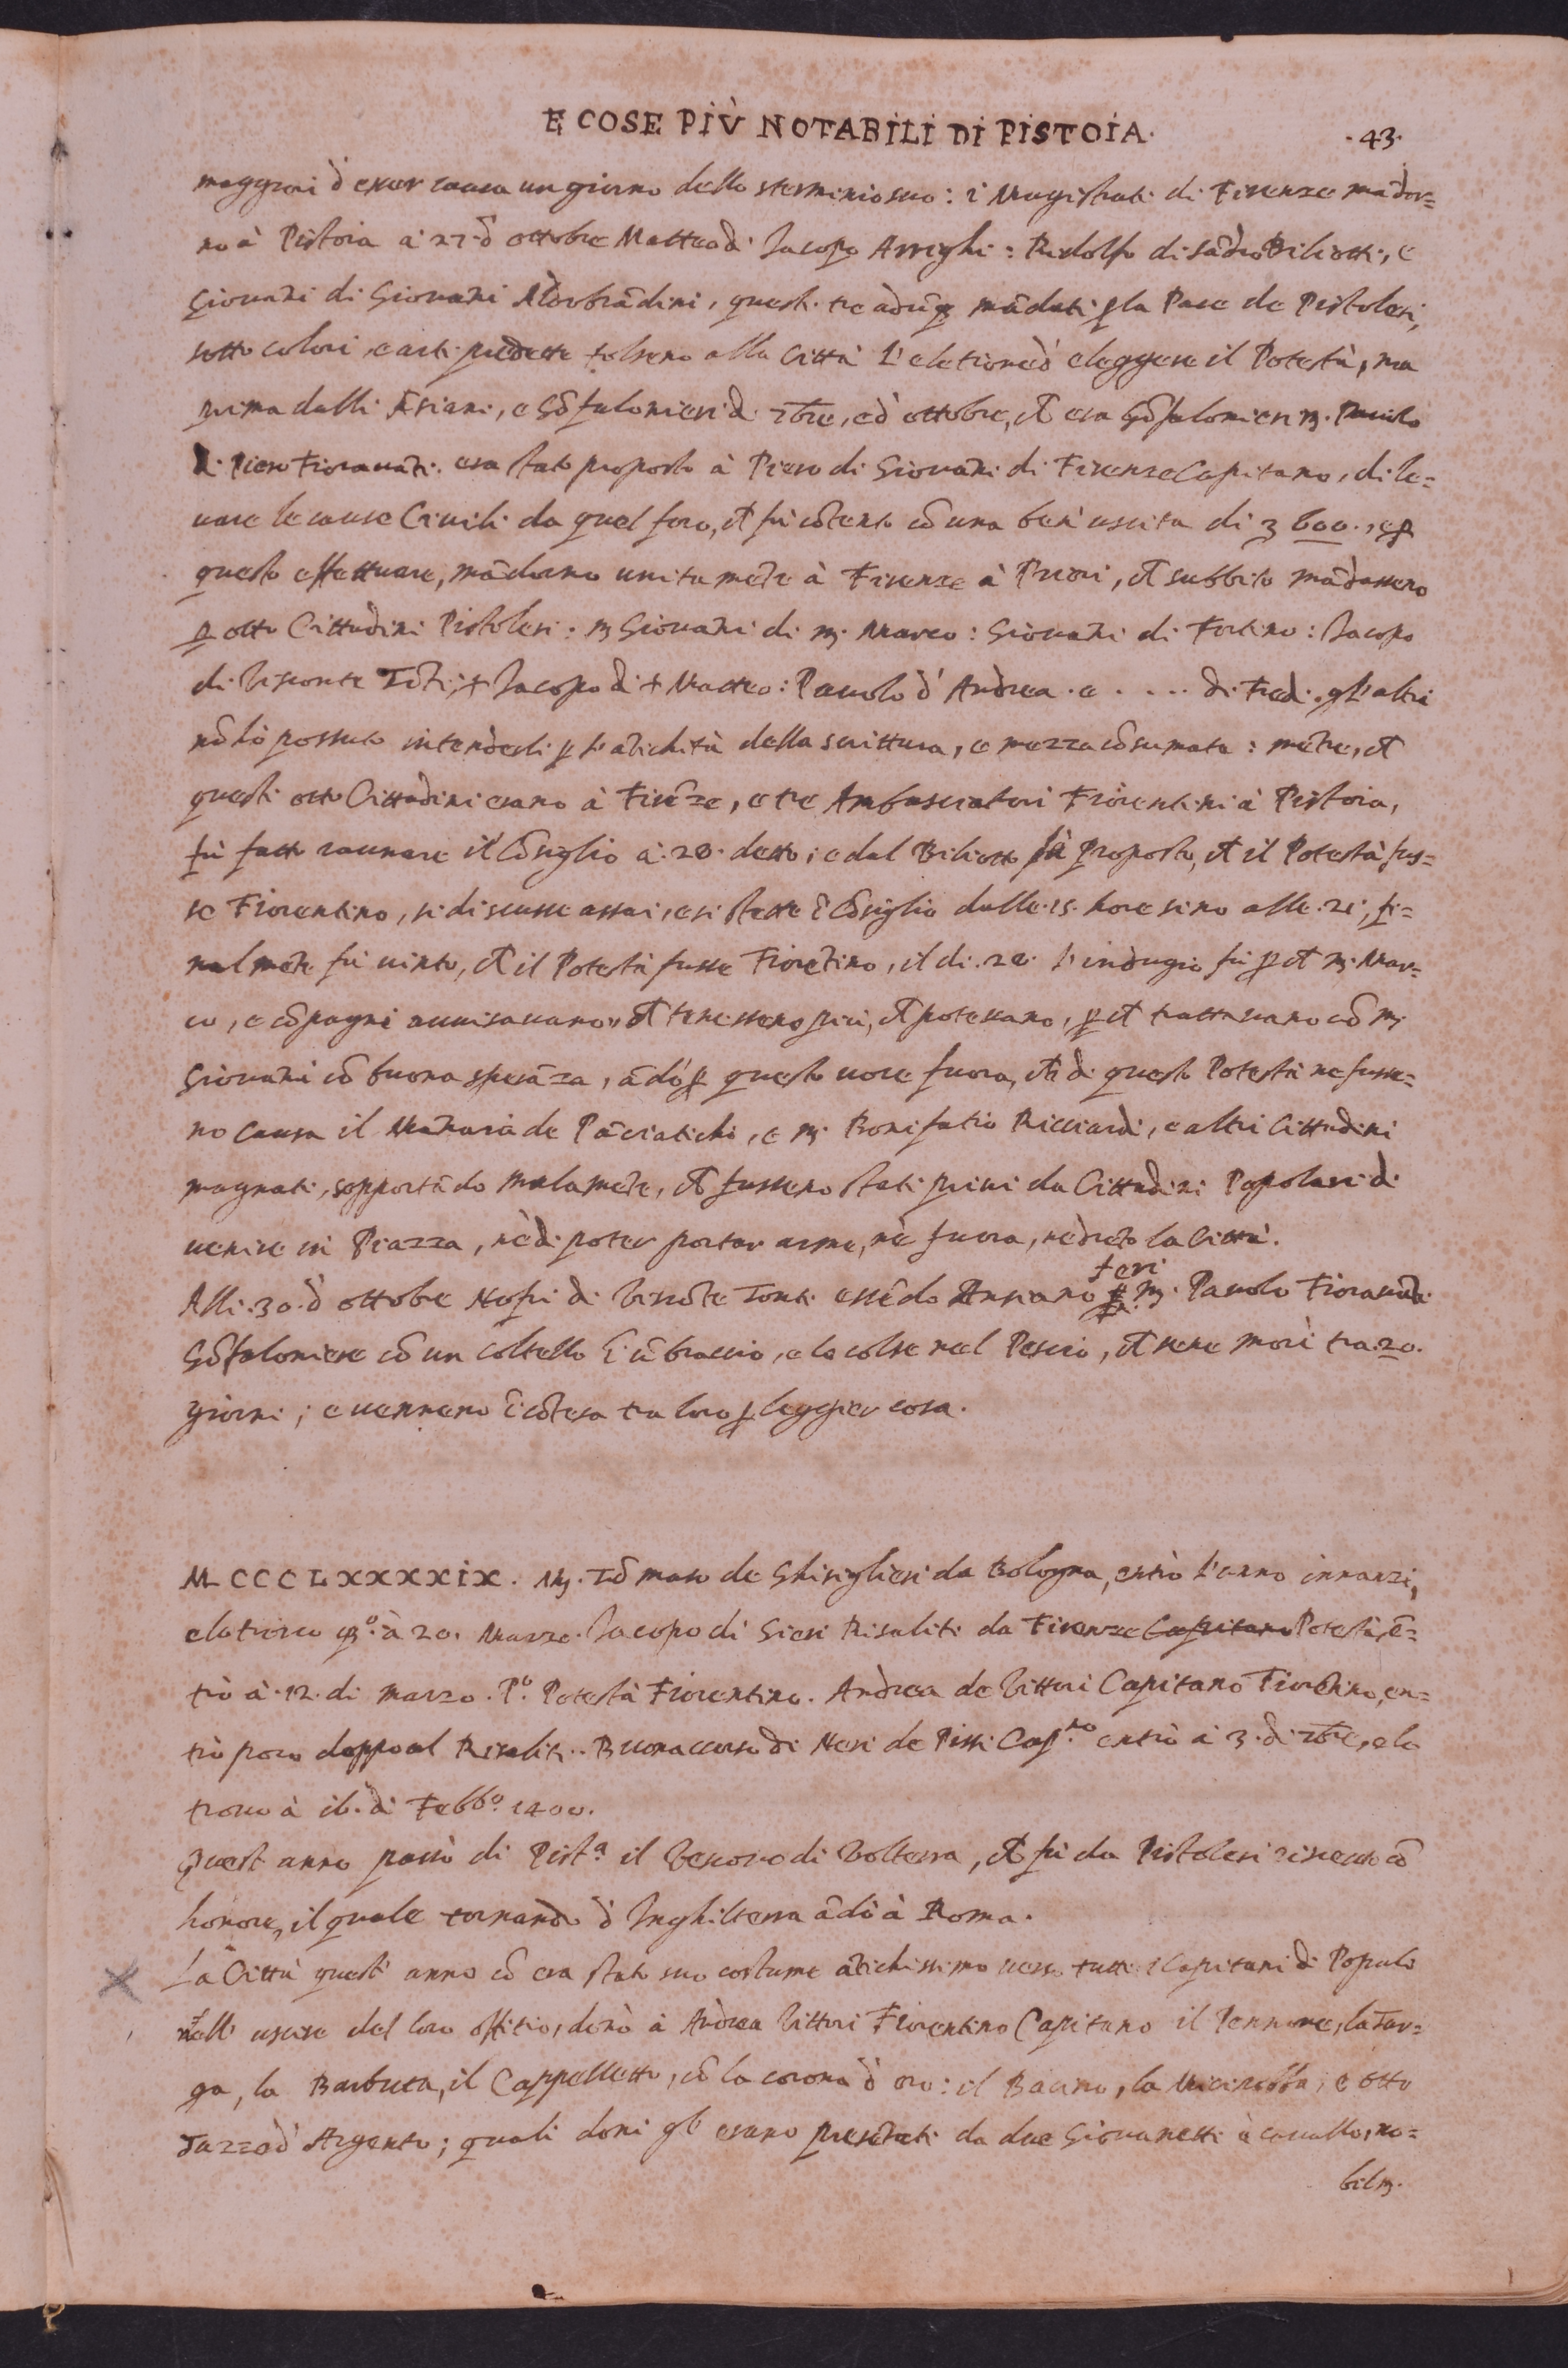 E COSE PIÙ NOTABILI DI PISTOIA.
.43.
maggiori d'esser causa un giorno dello sterminio suo: i Magistrati di Firenze mãdor=
no à Pistoia à 27. d' ottobre Matteo di Jacopo Arrighi: Ridolfo di Sãdro Biliotti, e
Giovãni di Giovani Aldobrãdini, questi tre adũq mãdati p la Pace de Pistolesi,
sotto colori, e arti predette tolseno alla Città l'eletione d' eleggere il Potestà, ma
prima dalli Ãsiani, e Gõfalonieri di 7bre, e d' ottobre, ch era Gõfalonieri M. Pauolo
di Piero Fiorauãti. era stato proposto à Piero di Giovãni di Firenze Capitano, di le=
uare le cause Ciuili da quel foro, ch fù cõtento cõ una ben' uscita di 3 600., e p
questo effettuare, mãdarno unitamẽte à Firenze à Priori, ch subbito mãdasseno
p otto Cittadini Pistolesi: M Giovãni di M. Marco: Giovãni di Fortino: Jacopo
di Visconte Tõti: + Jacopo di + Matteo: Pauolo d' Andrea. e . . . . di Fredi. gl'altri
nõ hò possuto intenderli p l' ãtichità della scrittura, e mezza cõsumata: mẽtre, ch
questi otto Cittadini erano à Firẽze, e tre Ambasciatori Fiorentini à Pistoia,
fù fatto raunare il Cõsiglio à. 28. detto; e dal Biliotto fù proposto, ch il Potestà fus=
se Fiorentino, si discusse assai, e si stette ĩ Cõsiglio dalle. 15. hore sino alle. 21, fi=
nalmẽte fù uinto, ch il Potestà fusse Fiorẽtino, il di. 28. l'indugio fù p ch M. Mar=
co, e cõpagni auuisauano, ch tenesseno più, ch potessano, p ch trattauano cõ M
Giovãni cõ buona sperãza, ãdò p questo uoce fuora, ch di questo Potestà ne fusse=
no causa il de Pãciatichi, e M. Bonifatio Ricciardi, e altri Cittadini
magnati, sopportãdo malamẽte, ch fusseno stati priui da Cittadini Popolari di
uenire in Piazza, nè di poter portar arme, nè fuora, nè drẽto la Città.
Alli. 30. d' ottobre Nofri di Viscõte Tonti essẽdo Ansiano ferì M. Pauolo Fiorauãti
Gõfaloniere cõ un coltello ĩ ũ braccio, e lo colse nel Pescio, ch sene morì tra. 20.
giorni; e uennero ĩ cõtesa tra loro p leggier cosa.
M CCC LXXXXIX. M. Tõmaso de Ghisiglieri da Bologna, entrò l'anno innanzi,
e lo trouo pº. à 20. Marzo. Jacopo di Gieri Risaliti da Firenze Capitano Potestà, ẽ=
trò à. 12. di Marzo. Pº. Potestà Fiorentino. Andrea de Vittori Capitano Fiorẽtino, en=
trò poco doppo al Risaliti. Buonaccorso di Neri de Pitti Capno. entrò à 3. di 7bre, e lo
trouo à 16. di Febbº. 1400.
Quest' anno passò di Pista. il Vescouo di Volterra, ch fù da Pistolesi riceuto cõ
honore, il quale tornando d' Inghilterra ãdò à Roma.
La Città quest' anno cõ era stato suo costume ãtichissimo uerso tutti i Capitani di Popolo
nell' uscire del loro offitio, donò à Andrea Vittori Fiorentino Capitano il Pennone, la Tar=
ga, la Barbuta, il Cappelletto, cõ la corona d' oro: il Bacino, la Mesciroba, e otto
Tazze d' Argento; quali doni gli erano presẽtati da due Giouanetti à cauallo, no=
bilm.